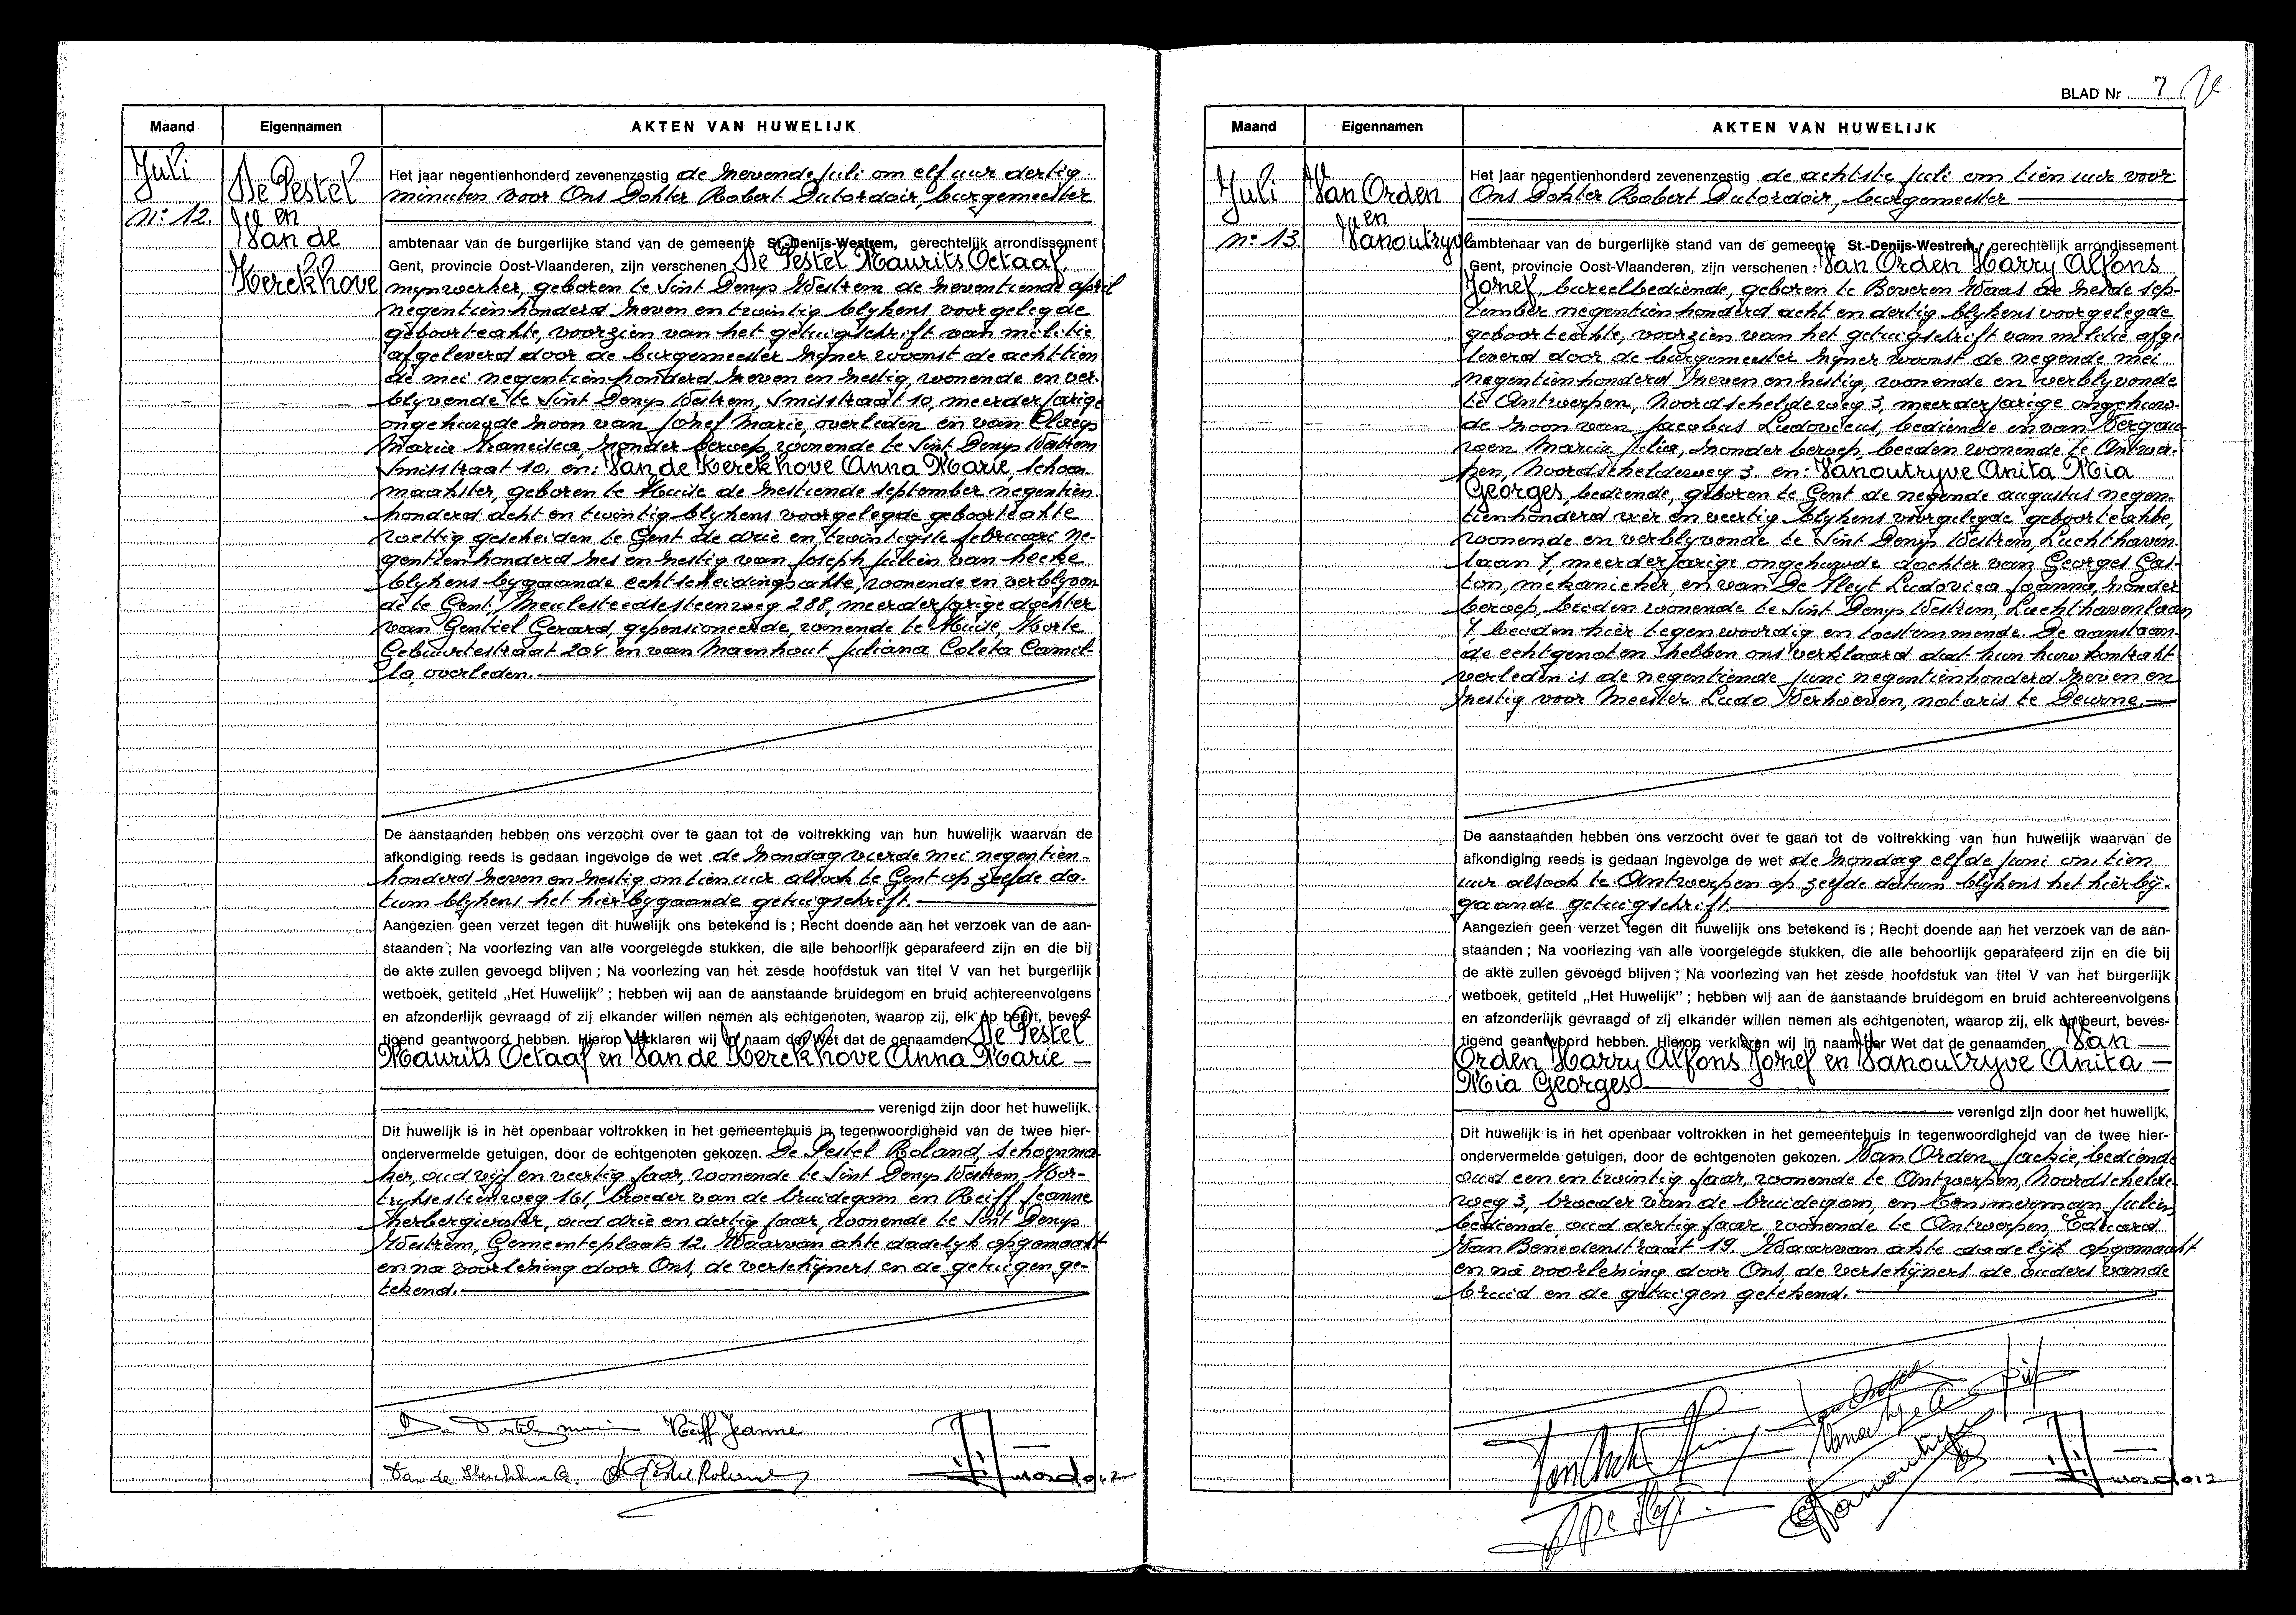 Maand
Eigennamen
AKTEN VAN HUWELIJK
Juli
n° 12.
De Pestel
en
Van de
Kerckhove
Het jaar negentienhonderd zevenenzestig de zevende juli om elf uur dertig
minuten voor Ons Dokter Robert Dutordoir, burgemeester
ambtenaar van de burgerlijke stand van de gemeente St.-Denijs-Westrem, gerechtelijk arrondissement
Gent, provincie Oost-Vlaanderen, zijn verschenen De Pestel Maurits Octaaf,
mynwerker, geboren te Sint Denys Westrem de zeventiende april
negentienhonderd zeven en twintig blykens voorgelegde
geboorteakte, voorzien van het getuigschrift van militie
afgeleverd door de burgemeester zyner woonst de achttien
de mei negentienhonderd zeven en zestig, wonende en ver-
blyvende te Sint Denys Westrem, Smisstraat 10, meerderjarige
ongehuwde zoon van Jozef Marie, overleden en van Claeys
Maria Francisca, zonder beroep, wonende te Sint Denys Westrem
Smisstraat 10. en: Van de Kerckhove Anna Marie, schoon
maakster, geboren te Huise de zestiende september negentien
honderd acht en twintig blykens voorgelegde geboorteakte
wettig gescheiden te Gent de drie en twintigste februari ne-
gentienhonderd zes en zestig van Joseph Julien van hecke
blykens bygaande echtscheidingsakte, wonende en verblyven
de te Gent, Meulesteedsesteenweg 288, meerderjarige dochter
van Gentiel Gerard, gepensioneerde, wonende te Huise, Korte
Gebuurtestraat 204 en van Maenhout Juliana Coleta Camil-
la, overleden.
De aanstaanden hebben ons verzocht over te gaan tot de voltrekking van hun huwelijk waarvan de
afkondiging reeds is gedaan ingevolge de wet de zondag vierde mei negentien-
honderd zeven en zestig om tien uur alsook te Gent op zelfde da-
tum blykens het hierbygaande getuigschrift.
Aangezien geen verzet tegen dit huwelijk ons betekend is ; Recht doende aan het verzoek van de aan-
staanden ; Na voorlezing van alle voorgelegde stukken, die alle behoorlijk geparafeerd zijn en die bij
de akte zullen gevoegd blijven ; Na voorlezing van het zesde hoofdstuk van titel V van het burgerlijk
wetboek, getiteld „Het Huwelijk" ; hebben wij aan de aanstaande bruidegom en bruid achtereenvolgens
en afzonderlijk gevraagd of zij elkander willen nemen als echtgenoten, waarop zij, elk op beurt, beves-
tigend geantwoord hebben. Hierop verklaren wij in naam der Wet dat de genaamden De Pestel
Maurits Octaaf en Van de Kerckhove Anna Marie
verenigd zijn door het huwelijk.
Dit huwelijk is in het openbaar voltrokken in het gemeentehuis in tegenwoordigheid van de twee hier-
ondervermelde getuigen, door de echtgenoten gekozen. De Pestel Roland, schoenma
ker, oud vijf en veertig jaar, wonende te Sint Denys Westrem, Kor-
tryksesteenweg 161, broeder van de bruidegom en Reiff Jeanne
herbergierster, oud drie en dertig jaar, wonende te Sint Denys
Westrem, Gemeenteplaats 12. Waarvan akte dadelyk opgemaakt
en na voorlezing door Ons, de verschijners en de getuigen ge-
tekend.
Reiff Jeanne
Van de Kerckhove A.
BLAD Nr 7
Maand
Eigennamen
AKTEN VAN HUWELIJK
Juli
n° 13.
Van Orden
en
Vanoutryve
Het jaar negentienhonderd zevenenzestig de achtste juli om tien uur voor
Ons Dokter Robert Dutordoir, burgemeester
ambtenaar van de burgerlijke stand van de gemeente St.-Denijs-Westrem, gerechtelijk arrondissement
Gent, provincie Oost-Vlaanderen, zijn verschenen : Van Orden Harry Alfons
Jozef, bureelbediende, geboren te Beveren Waas de zesde sep-
tember negentienhonderd acht en dertig blykens voorgelegde
geboorteakte, voorzien van het getuigschrift van militie afge
leverd door de burgemeester zyner woonst de negende mei
negentienhonderd zeven en zestig, wonende en verblyvende
te Antwerpen, Noordscheldeweg 3, meerderjarige ongehuw-
de zoon van Jacobus Ludovicus, bediende en van Vergau
wen Maria Julia, zonder beroep, beiden wonende te Antwer-
pen, Noordscheldeweg 3. en: Vanoutryve Anita Mia
Georges, bediende, geboren te Gent de negende augustus negen-
tienhonderd vier en veertig blykens voorgelegde geboorteakte,
wonende en verblyvende te Sint Denys Westrem, Luchthaven
laan 7, meerderjarige ongehuwde dochter van Georges Gas-
ton, mekanieker, en van De Vleyt Ludovica Joanna, zonder
beroep, beiden wonende te Sint Denys Westrem, Luchthavenlaan
7 beiden hier tegenwoordig en toestemmende. De aanstaan
de echtgenoten hebben ons verklaard dat hun huwkontrakt
verleden is de negentiende juni negentienhonderd zeven en
zestig voor Meester Ludo Verhoeven, notaris te Deurne.
De aanstaanden hebben ons verzocht over te gaan tot de voltrekking van hun huwelijk waarvan de
afkondiging reeds is gedaan ingevolge de wet de zondag elfde juni om tien
uur alsook te Antwerpen op zelfde datum blykens het hierby-
gaande getuigschrift.
Aangezien geen verzet tegen dit huwelijk ons betekend is ; Recht doende aan het verzoek van de aan-
staanden ; Na voorlezing van alle voorgelegde stukken, die alle behoorlijk geparafeerd zijn en die bij
de akte zullen gevoegd blijven ; Na voorlezing van het zesde hoofdstuk van titel V van het burgerlijk
wetboek, getiteld „Het Huwelijk" ; hebben wij aan de aanstaande bruidegom en bruid achtereenvolgens
en afzonderlijk gevraagd of zij elkander willen nemen als echtgenoten, waarop zij, elk op beurt, beves-
tigend geantwoord hebben. Hierop verklaren wij in naam der Wet dat de genaamden Van
Orden Harry Alfons Jozef en Vanoutryve Anita
Mia Georges
verenigd zijn door het huwelijk.
Dit huwelijk is in het openbaar voltrokken in het gemeentehuis in tegenwoordigheid van de twee hier-
ondervermelde getuigen, door de echtgenoten gekozen. Van Orden Jackie, bediende
oud een en twintig jaar, wonende te Antwerpen, Noordschelde
weg 3, broeder van de bruidegom, en Temmerman Julien
bediende oud dertig jaar wonende te Antwerpen, Eduard
Van Benedenstraat 19. Waarvan akte dadelijk opgemaakt
en na voorlezing door Ons, de verschijners de ouders van de
bruid en de getuigen getekend.